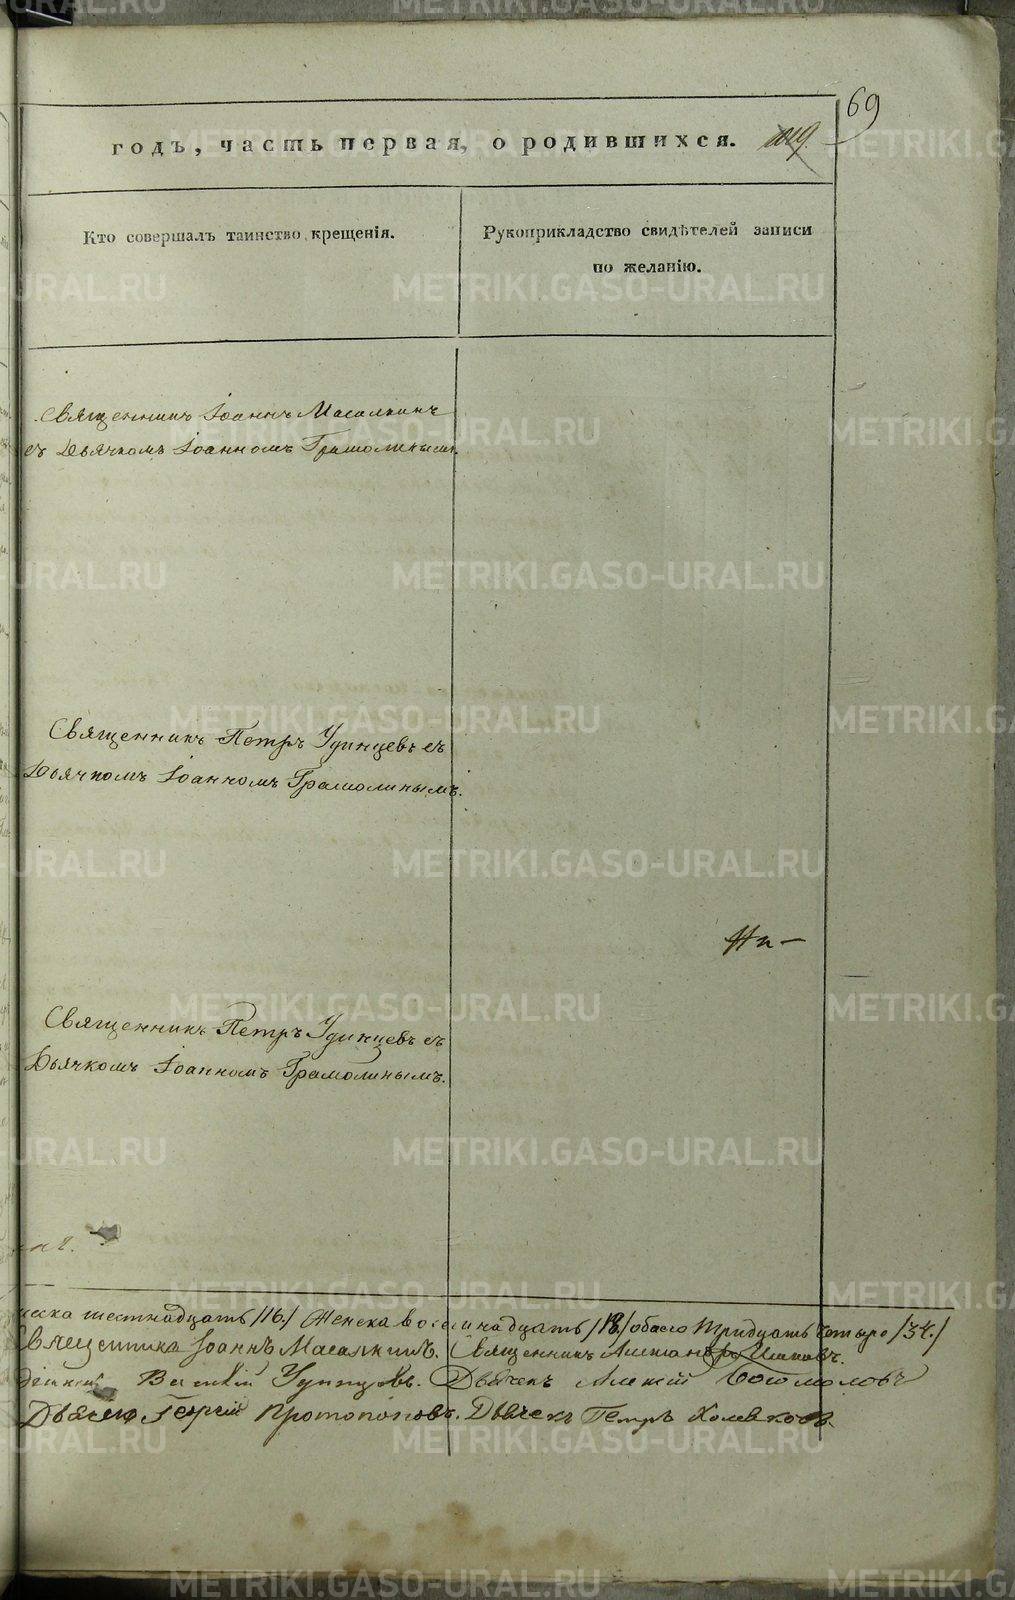 69
годъ, часть первая, о родившихся. 119
Кто совершалъ таинство крещенія.
Рукоприкладство свидѣтелей записи
по желанію.
Священникъ Іоаннъ Масалкинъ
съ Дьячкомъ Іоанномъ Грамолинымъ.
Священникъ Петръ Удинцевъ съ
Дьячкомъ Іоанномъ Грамолинымъ.
Священникъ Петръ Удинцевъ съ
Дьячкомъ Іоанномъ Грамолинымъ.
шестнадцать /16/ Женска восемнадцать /18/ обоего тридцать четыре /34./
Священникъ Іоаннъ Масалкинъ. Священникъ
Удинцовъ. Дьячекъ Алексій Богомоловъ
Дьячекъ Георгій Протопоповъ. Дьячекъ Петръ
METRIKI.GASO-URAL.RU